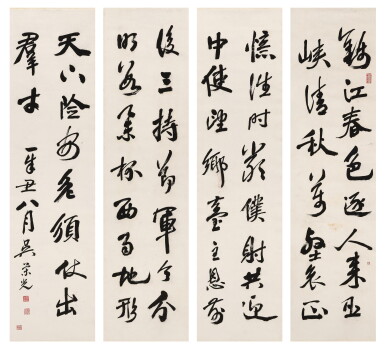 錦江春色逐人来巫
峽清秋萬壑哀正
憶往時嚴僕射共迎
中使望鄉臺主恩前
後三持節軍令分
明數舉杯西蜀地形
天下險安危須仗出
羣才
辛丑八月吳榮光